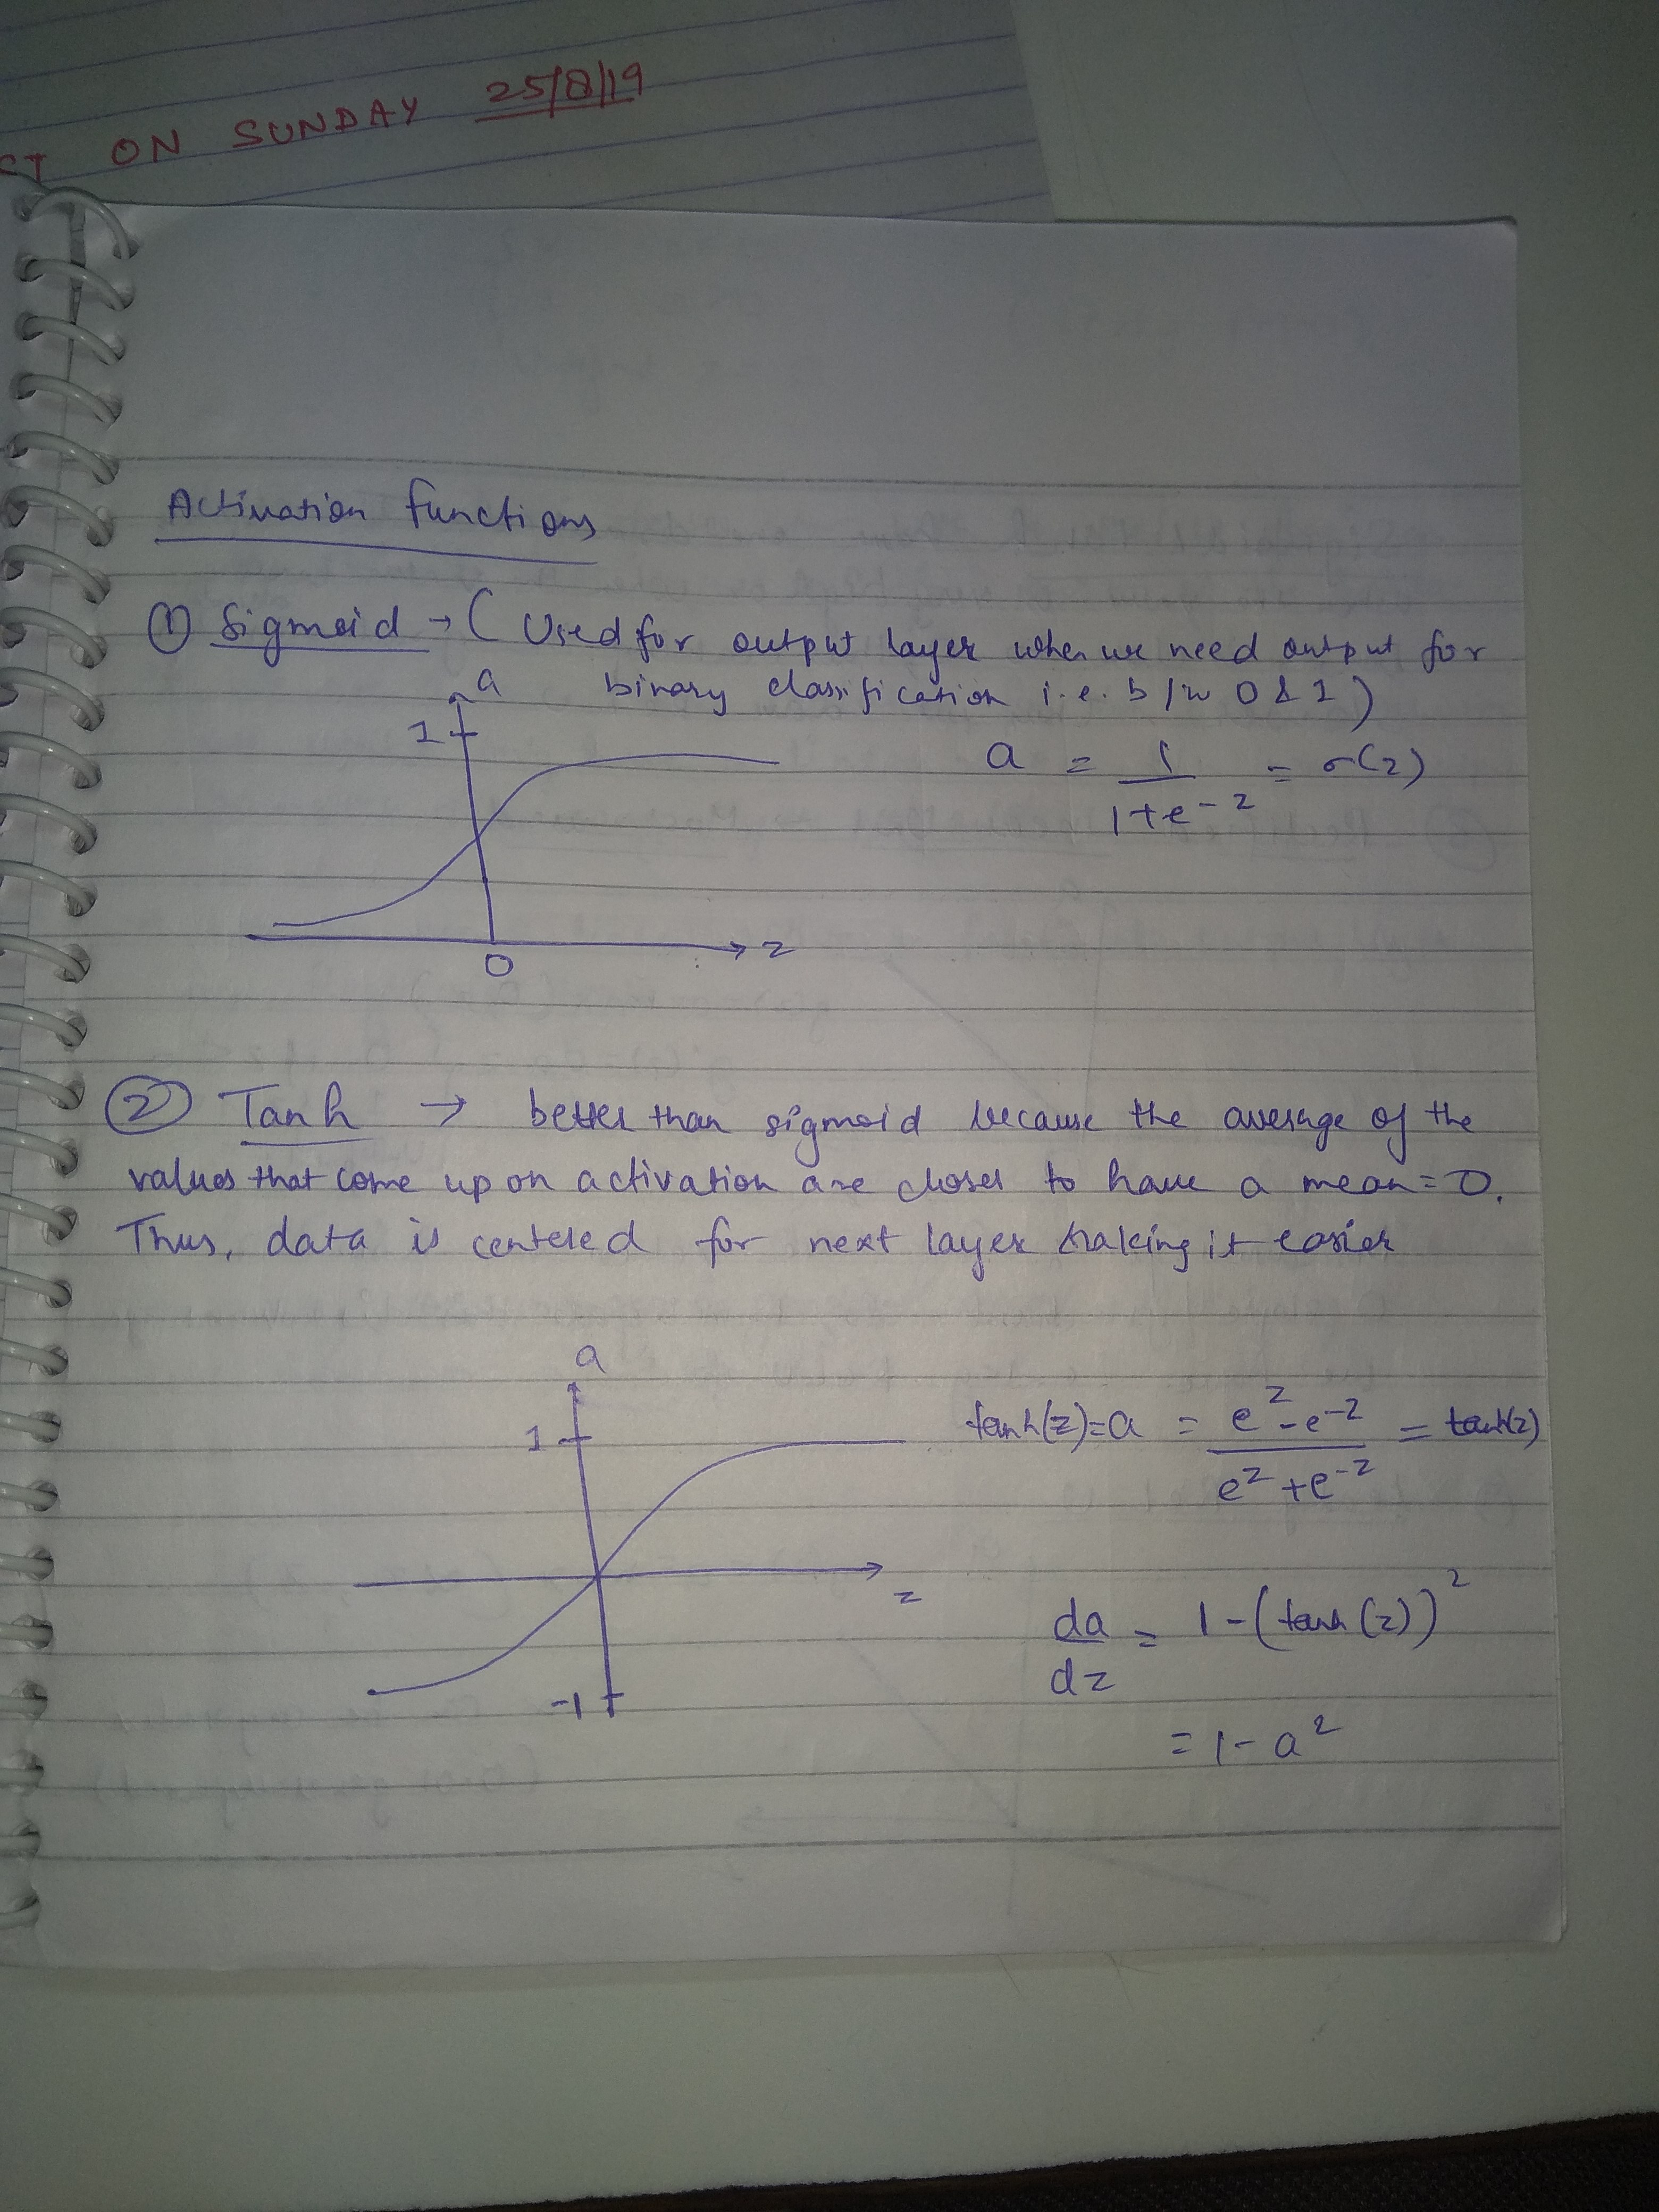 CT ON SUNDAY 25/8/19
Activation functions
① Sigmoid → ( Used for output layer when we need output for
binary classification i.e. b/w 0 & 1 )
a
1
a = 1/(1+e^-z) = σ(z)
z
0
② Tanh → better than sigmoid because the average of the
values that come up on activation are closer to have a mean = 0.
Thus, data is centered for next layer making it easier
a
1
tanh(z) = a = (e^z - e^-z)/(e^z + e^-z) = tanh(z)
z
da/dz = 1 - (tanh(z))^2
-1
= 1 - a^2